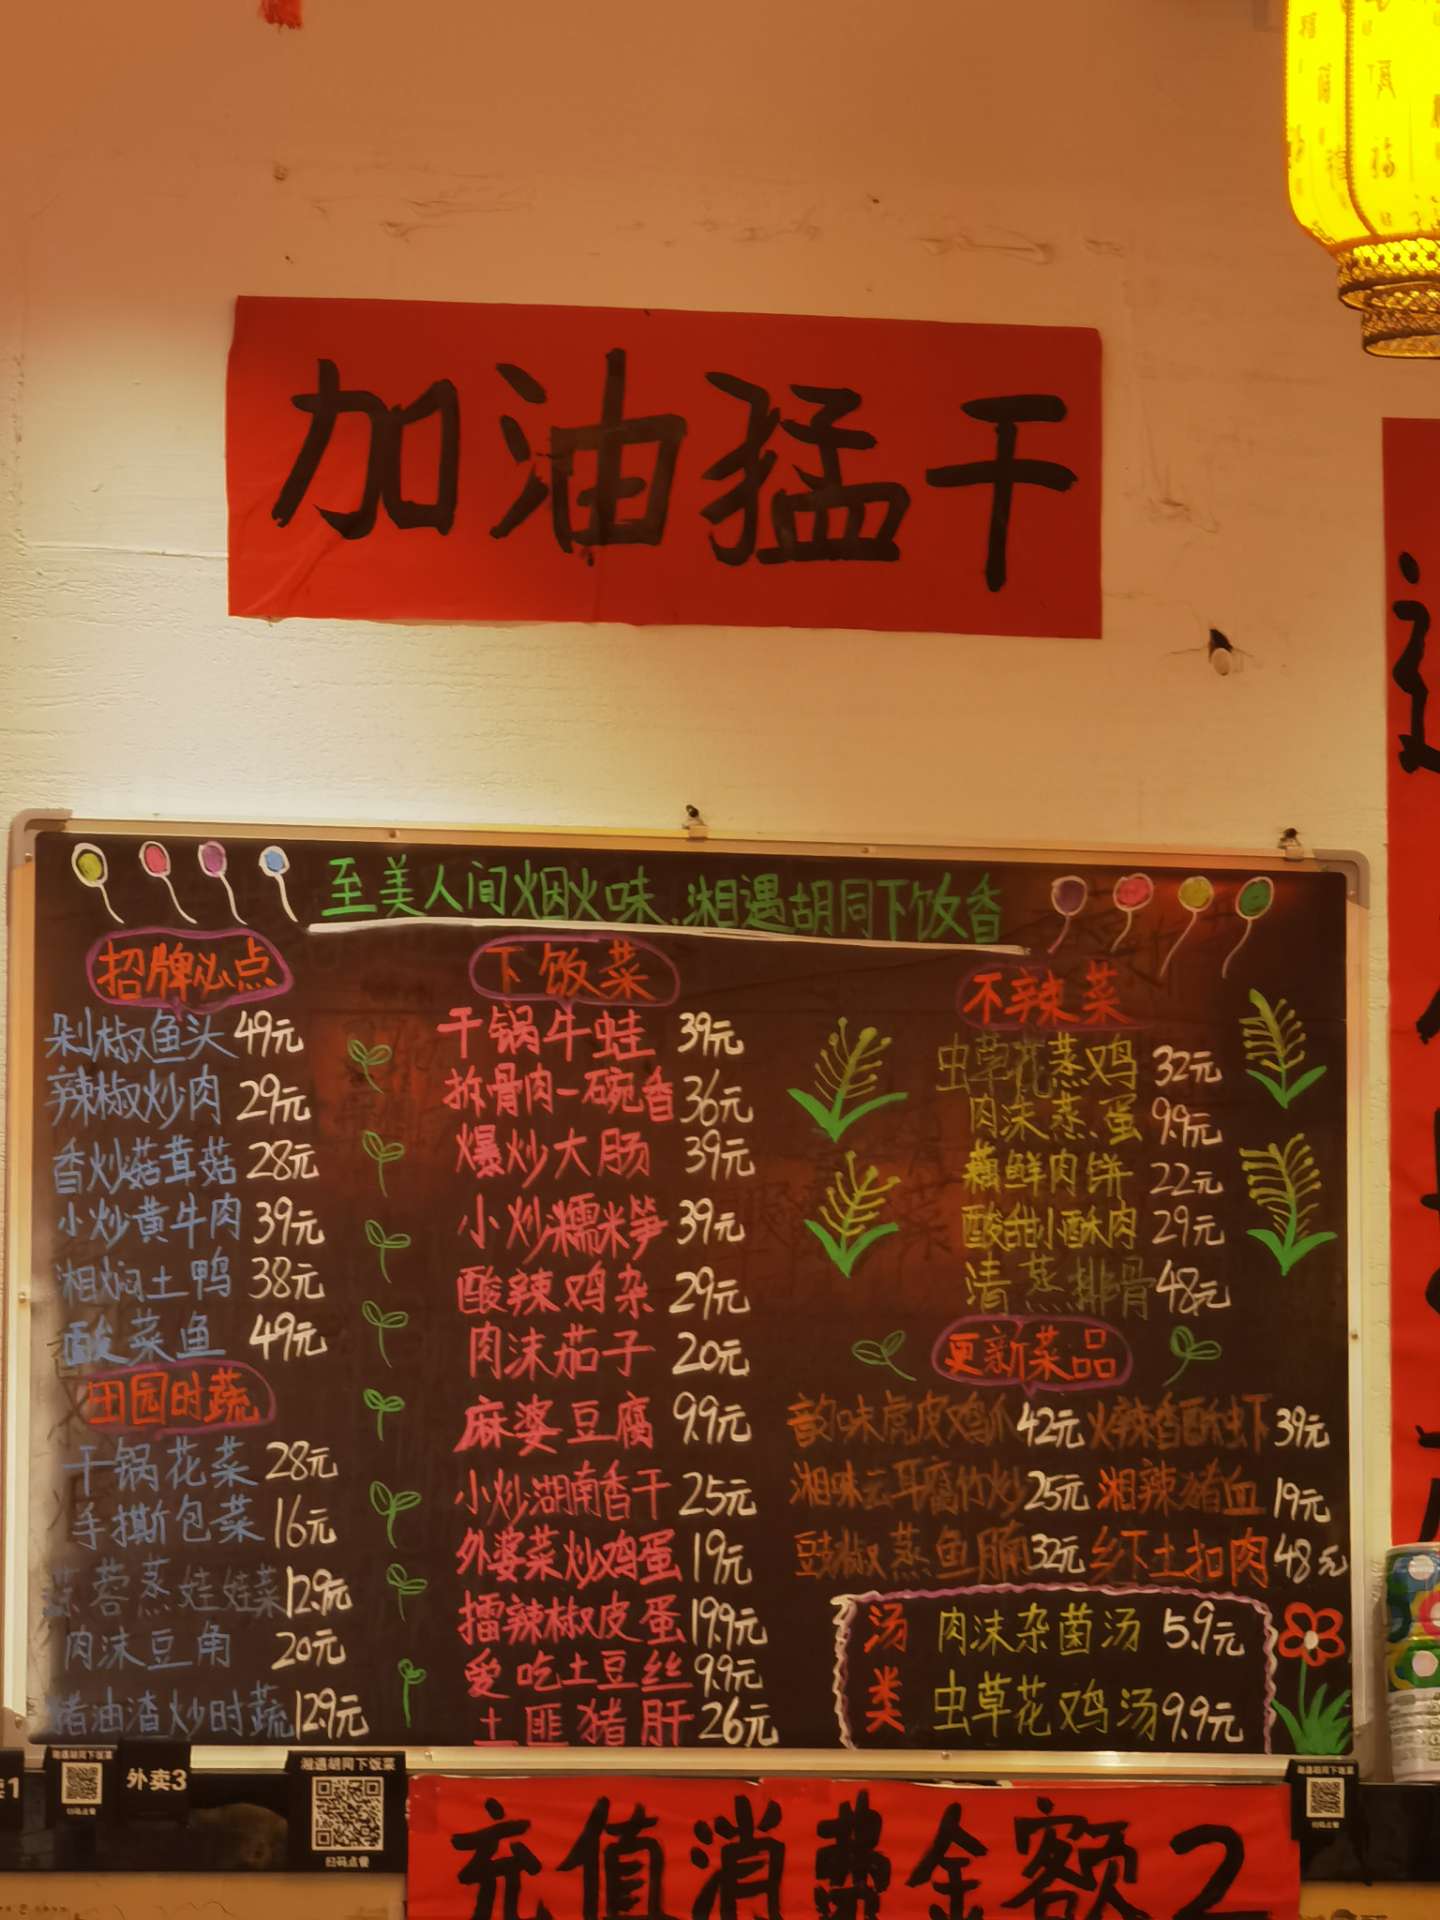 加油猛干
至美人间烟火味.湘遇胡同下饭香
招牌必点
剁椒鱼头 49元
辣椒炒肉 29元
香炒菇茸菇 28元
小炒黄牛肉 39元
湘焖土鸭 38元
酸菜鱼 49元
田园时蔬
干锅花菜 28元
手撕包菜 16元
蒜蓉蒸娃娃菜 12.9元
肉沫豆角 20元
猪油渣炒时蔬 12.9元
下饭菜
干锅牛蛙 39元
拆骨肉一碗香 36元
爆炒大肠 39元
小炒糯米笋 39元
酸辣鸡杂 29元
肉沫茄子 20元
麻婆豆腐 9.9元
小炒湖南香干 25元
外婆菜炒鸡蛋 19元
擂辣椒皮蛋 19.9元
爱吃土豆丝 9.9元
土匪猪肝 26元
不辣菜
虫草花蒸鸡 32元
肉沫蒸蛋 9.9元
藕鲜肉饼 22元
酸甜小酥肉 29元
清蒸排骨 48元
更新菜品
韵味虎皮鸡爪 42元 火辣香酥虾 39元
湘味云耳腐竹炒 25元 湘辣猪血 19元
豉椒蒸鱼腩 32元 乡下土扣肉 48元
汤类
肉沫杂菌汤 5.9元
虫草花鸡汤 9.9元
湘遇胡同下饭菜
扫码点餐
外卖3
湘遇胡同下饭菜
扫码点餐
湘遇胡同下饭菜
扫码点餐
充值消费金额2